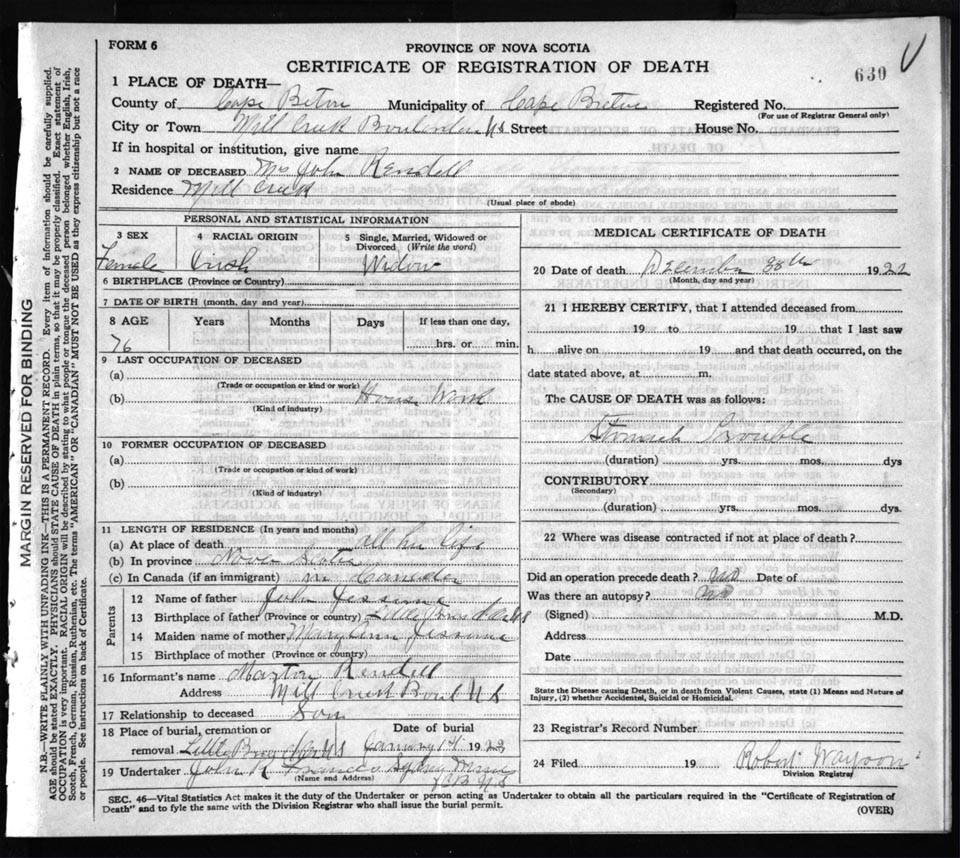 FORM 6
PROVINCE OF NOVA SCOTIA
CERTIFICATE OF REGISTRATION OF DEATH
630
1 PLACE OF DEATH—
County of Cape Breton Municipality of Cape Breton Registered No.
(For use of Registrar General only)
City or Town Mill Creek NS Street House No.
If in hospital or institution, give name
2 NAME OF DECEASED Mrs John Rendell
Residence Mill Creek
(Usual place of abode)
PERSONAL AND STATISTICAL INFORMATION
3 SEX 4 RACIAL ORIGIN 5 Single, Married, Widowed or Divorced. (Write the word)
Female Irish Widow
6 BIRTHPLACE (Province or Country)
7 DATE OF BIRTH (month, day and year)
8 AGE Years Months Days If less than one day,
76 hrs. or min.
9 LAST OCCUPATION OF DECEASED
(a)
(Trade or occupation or kind or work)
(b) House Work
(Kind of industry)
10 FORMER OCCUPATION OF DECEASED
(a)
(Trade or occupation or kind of work)
(b)
(Kind of industry)
11 LENGTH OF RESIDENCE (In years and months)
(a) At place of death all her life
(b) In province Nova Scotia
(c) In Canada (if an immigrant) in Canada
Parents
12 Name of father John
13 Birthplace of father (Province or country) Little
14 Maiden name of mother Mary Ann
15 Birthplace of mother (Province or country)
16 Informant's name Rendell
Address Mill Creek NS
17 Relationship to deceased Son
18 Place of burial, cremation or removal Little NS
Date of burial January 1922
19 Undertaker John Sydney Mines
(Name and Address)
C B N S
MEDICAL CERTIFICATE OF DEATH
20 Date of death December 1922
(Month, day and year)
21 I HEREBY CERTIFY, that I attended deceased from
19 to 19 that I last saw
h alive on 19 and that death occurred, on the
date stated above, at m.
The CAUSE OF DEATH was as follows:
Stomach Trouble
(duration) yrs. mos. dys
CONTRIBUTORY
(Secondary)
(duration) yrs. mos. dys.
22 Where was disease contracted if not at place of death?
Did an operation precede death? no Date of
Was there an autopsy? no
(Signed) M.D.
Address
Date
State the Disease causing Death, or in death from Violent Causes, state (1) Means and Nature of
Injury, (2) whether Accidental, Suicidal or Homicidal.
23 Registrar's Record Number
24 Filed 19 Robert
Division Registrar
SEC. 46—Vital Statistics Act makes it the duty of the Undertaker or person acting as Undertaker to obtain all the particulars required in the "Certificate of Registration of
Death" and to fyle the same with the Division Registrar who shall issue the burial permit.
(OVER)
MARGIN RESERVED FOR BINDING
N.B.—WRITE PLAINLY WITH UNFADING INK—THIS IS A PERMANENT RECORD. Every item of information should be carefully supplied.
AGE should be stated EXACTLY. PHYSICIANS should STATE CAUSE OF DEATH in plain terms, so that it may be properly classified. Exact statement of
OCCUPATION is very important. RACIAL ORIGIN will be described by stating to what people or tongue the deceased person belonged whether English, Irish,
Scotch, French, German, Russian, Ruthenian, etc. The terms "AMERICAN" OR "CANADIAN" MUST NOT BE USED as they express citizenship but not a race
or people. See instructions on back of Certificate.